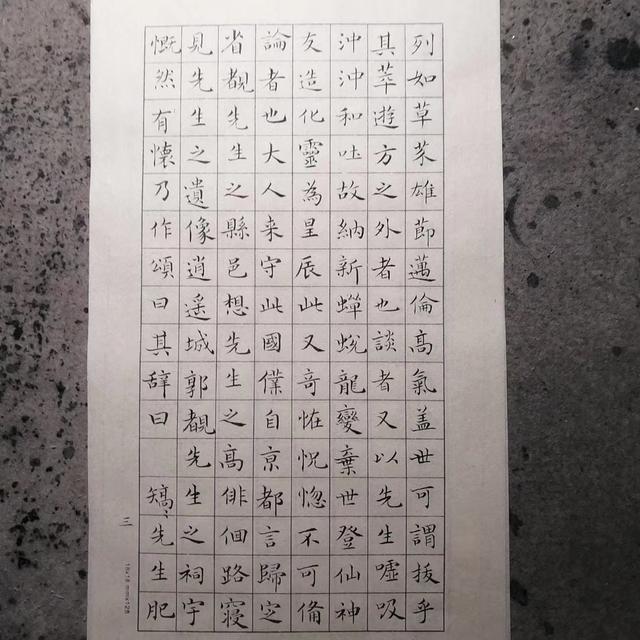 列如草芥雄節邁倫高氣盖世可謂拔乎
其萃遊方之外者也談者又以先生噓吸
沖沖和吐故納新蟬蛻龍變棄世登仙神
友造化靈為星辰此又奇怪怳惚不可俻
論者也大人来守此國僕自京都言歸定
省覩先生之縣邑想先生之高徘佪路寢
見先生之遺像逍遙城郭覩先生之祠宇
慨然有懷乃作頌曰其辭曰 矯、先生肥
三